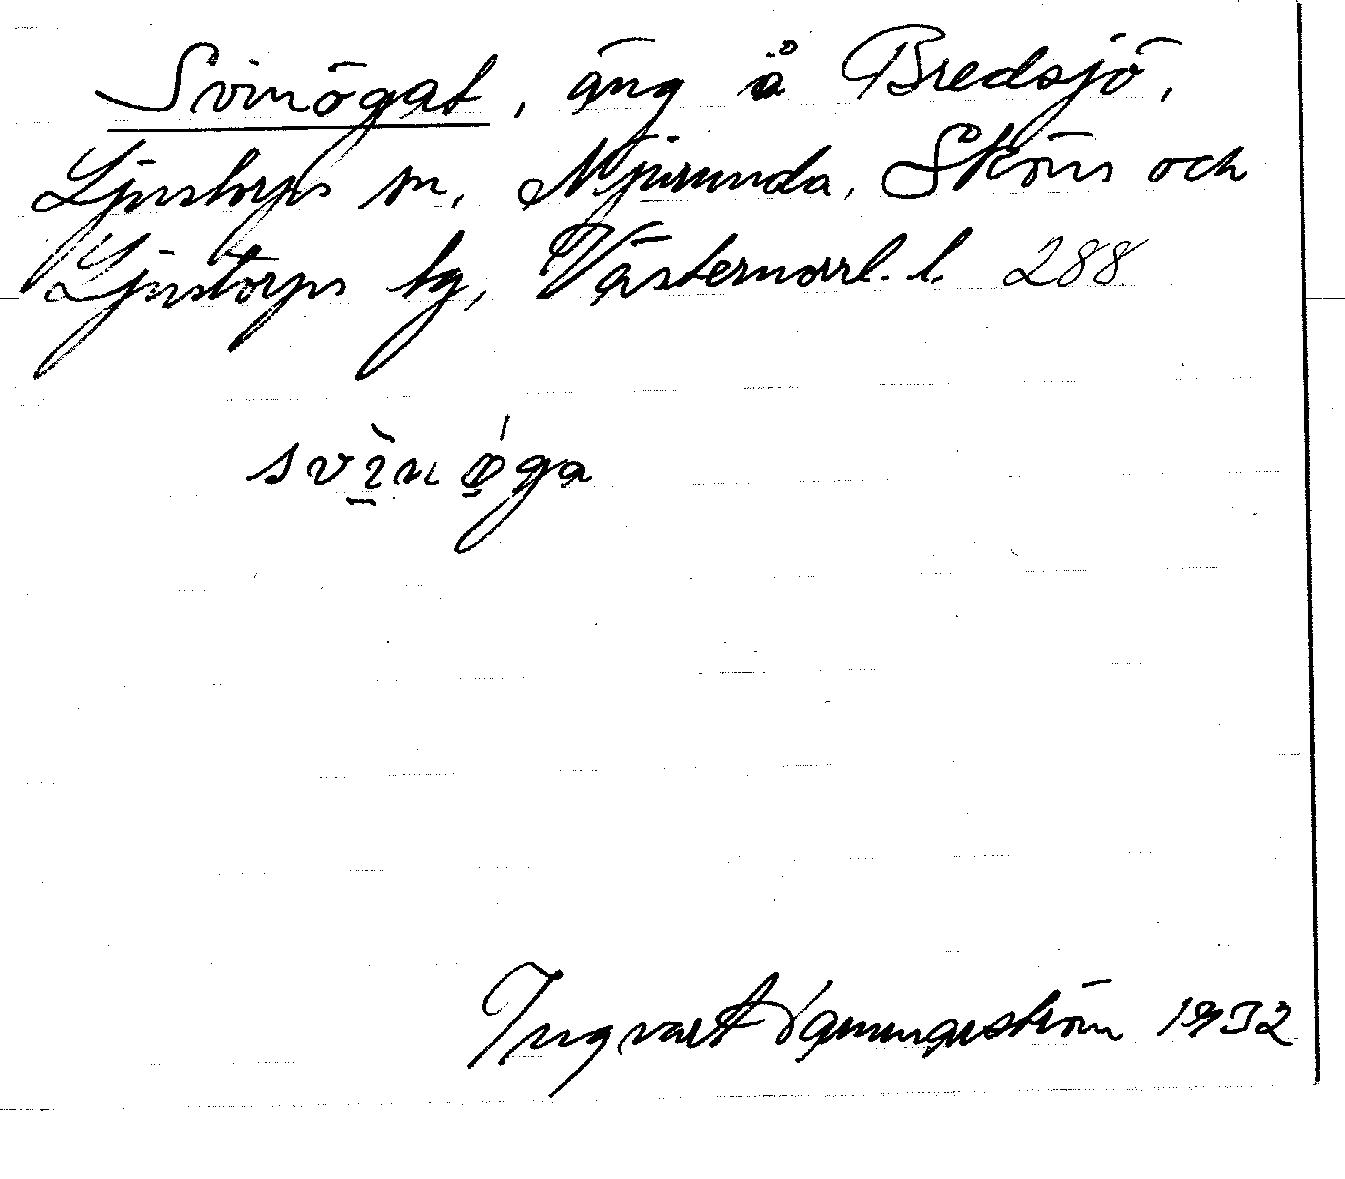 Svinögat, äng å Bredsjö,
Ljustorps sn, Njurunda, Sköns och
Ljustorps tg, Västernorrl. l. 288
svìn ǿga
Ingvart 1932